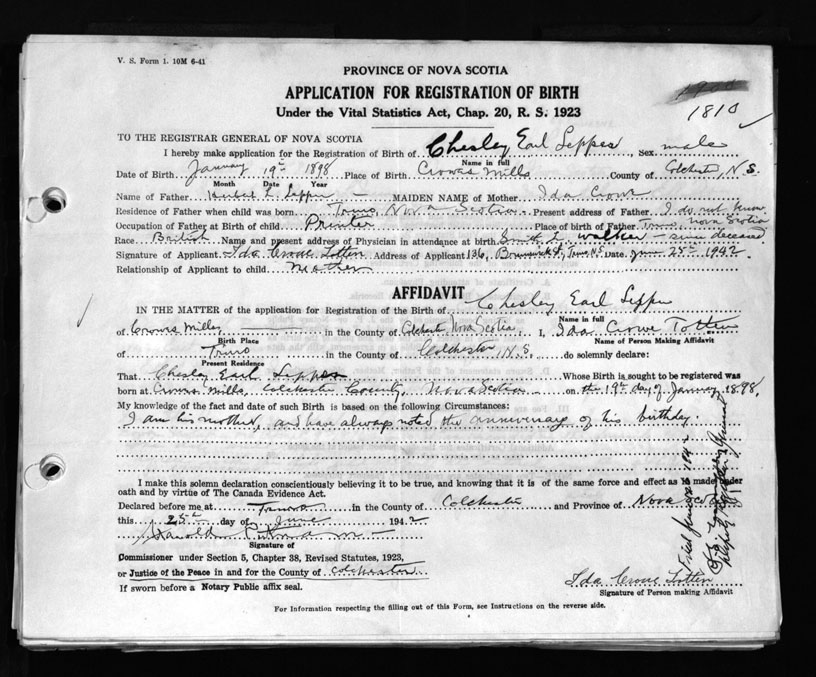 V. S. Form 1. 10M 6-41
PROVINCE OF NOVA SCOTIA
APPLICATION FOR REGISTRATION OF BIRTH
1810
Under the Vital Statistics Act, Chap. 20, R. S. 1923
TO THE REGISTRAR GENERAL OF NOVA SCOTIA
I hereby make application for the Registration of Birth of Chesley Earl Lepper Sex male
Name in full
Date of Birth January 19th 1898 Place of Birth Crows Mills County of Colchester, N.S.
Month Date Year
Name of Father L. Lepper MAIDEN NAME of Mother Ida Crowe
Residence of Father when child was born Truro, Nova Scotia Present address of Father I do not know
Occupation of Father at Birth of child Printer Place of birth of Father Truro, Nova Scotia
Race British Name and present address of Physician in attendance at birth Walker - deceased
Signature of Applicant Ida Crowe Totten Address of Applicant 136, Brunswick St, Truro N.S. Date June 25th 1942
Relationship of Applicant to child mother
AFFIDAVIT
IN THE MATTER of the application for Registration of the Birth of Chesley Earl Lepper
Name in full
of Crows Mills in the County of Colchester Nova Scotia I, Ida Crowe Totten
Birth Place Name of Person Making Affidavit
of Truro in the County of Colchester, N.S. do solemnly declare:
Present Residence
That Chesley Earl Lepper Whose Birth is sought to be registered was
born at Crows Mills, Colchester County, Nova Scotia on the 19th day of January 1898,
My knowledge of the fact and date of such Birth is based on the following Circumstances:
I am his mother, and have always noted the anniversary of his birthday.
I make this solemn declaration conscientiously believing it to be true, and knowing that it is of the same force and effect as is made under
oath and by virtue of The Canada Evidence Act.
Declared before me at Truro in the County of Colchester and Province of Nova Scotia
this 25th day of June 1942
Harold Putnam
Signature of
Commissioner under Section 5, Chapter 38, Revised Statutes, 1923,
or Justice of the Peace in and for the County of Colchester
If sworn before a Notary Public affix seal.
Ida Crowe Totten
Signature of Person making Affidavit
For Information respecting the filling out of this Form, see Instructions on the reverse side.